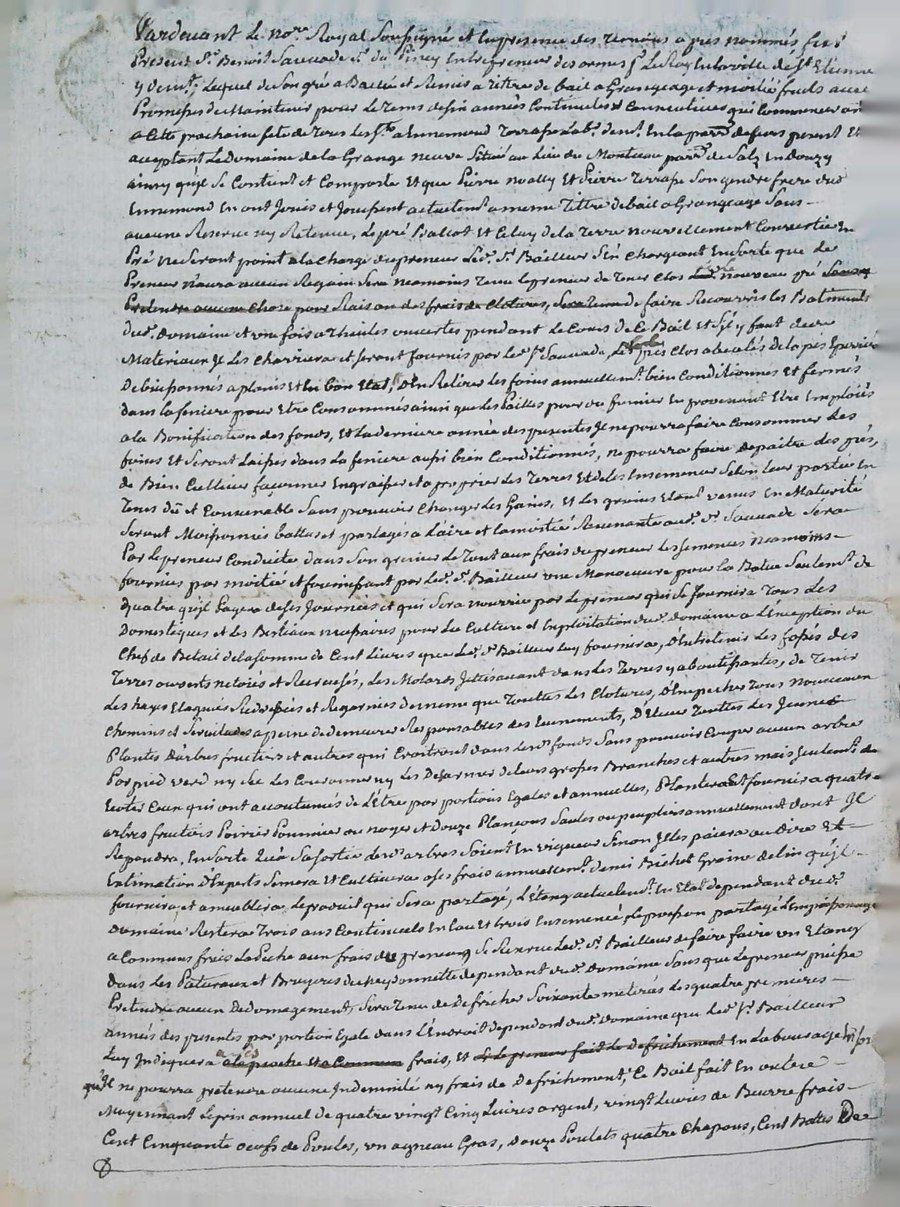 Pardevant Le no.re Royal Soussigné et En presence des Temoins apres nommés fut
Present S.r Benoit Sauvade Entrepreneur des armes p.r Le Roy En la ville de S.t Etienne
y dem.t, Lequel de Son gré a Baillé et Remis a titre de bail a Grangeage et moitié fruits avec
Promesse de Maintenir pour Le Tems de Six années Continuelles et Consecutives qui Commenceront
a Cette prochaine fete de Tous Les S.ts a Ennemond Terrasse Lab.r dem.t En la parr.e de present Et
acceptant Le Domaine de la Grange neuve Situé au Lieu du Monteau parr.e de Salt En Donzy
ainsy qu'il Se Contient et Comporte Et que Pierre noally Et Pierre Terrasse Son gendre frere dud.
Ennemond En ont Jouis et Jouissent actuellem.t a meme Tittre de bail a Grangeage Sans
aucune Reserve ny Retenue, Le pré Et Celuy de la Terre nouvellement Convertie En
Pré ne Seront point a la Charge du preneur Led. S.r Bailleur S'En Chargeant En Sorte que Le
Preneur n'aura aucun Regain Sera neamoins Tenu Le preneur de Tenir Clos nouveau pré
Pretendre aucune Chose pour Raison des frais de Clotures, Sera Tenu de faire Recouvrir Les Batiments
dud. Domaine et une fois a Thuiles ouvertes pendant Le Cours de Ce Bail et S'il y faut des
Materiaux Je Les Charriera et Seront fournis par Led. S.r Sauvade, Les prés Clos
de buissonnes a planis Et En bon Etat, d'En Retirer Les foins annuellem.t bien Conditionnés Et fermés
dans la feniere pour Etre Consommés ainsi que Les Pailles pour du fumier En provenant Etre Emploiés
a la Bonification des fonds, Et La derniere année des presentes Je ne pourra faire Consommer Les
foins Et Seront Laissés dans la feniere aussi bien Conditionnés, ne pourra faire Depaitre des prés,
de Bien Cultiver fa fumer Engraisser et Les Terres Et de Les Ensemencer Selon Leur portée En
Tems du et Convenable Sans pouvoir Changer Les Gains, Et Les grains Etant venus En Maturité
Seront Moissonnés battus et partagés a L'aire et la moitié Revenante aud. S.r Sauvade Sera
Par Le preneur Conduite dans Son grenier Le Tout aux frais du preneur Les Semences neamoins
fournies par moitié et fournissant par Led. S.r Bailleur une Manoeuvre pour La Batue Seulem.t de
quatre qu'il Payera de Ses Journées et qui Sera nourrie par Le preneur qui Se fournira Tous Les
Domestiques et Les Bestiaux necessaires pour La Culture et Exploitation dud. domaine a L'Exeption du
Chef de Betail de la Somme de Cent Livres que Led. S.r Bailleur Luy fournira, d'Entretenir Les fossés des
Terres ouverts netoiés et Recreusés, Les Jettés avant dans Les Terres y aboutissantes, de Tenir
Les hayes Elaguées et Regarnies de meme que Touttes Les Clotures, d'Empecher Tous Nouveaux
Chemins et Servitudes a peine de demeurer Responsable des Evenements, D'Elever Touttes Les Jeunes
Plantes D'arbres fructiers et autres qui Croitront dans Led. fonds Sans pouvoir Couper aucun arbre
Par pied verd ny Sec Les Couronner ny Les Desarmer de leurs grosses Branches et autres mais Seulem.t de
Ecoter Ceux qui ont accoutumés de L'etre par portions Egales et annuelles, Plantera et fournira quatre
arbres fructiers Poiriers Pommiers ou noyers et Douze Plançons Saules ou peupliers annuellement dont Je
Repondra, En Sorte qu'a Sa Sortie Led. arbres Soient En vigueur Sinon Il les paiera au Dire Et
Estimation d'Experts Semera Et Cultivera a Ses frais annuellem.t demi Bichet Graine de lin qu'il
fournira et ameublira Le produit qui Sera partagé, L'Etang actuellem.t En Etat dependant dud.
Domaine Restera Trois ans Continuels En Eau et trois Ensemencé, Le poisson partagé L'Empoissonnage
a Communs frais La Peche aux frais du preneur, Se Reserve Led. S.r Bailleur de faire faire un Etang
dans Les Patureaux et Bruyeres dependant dud. Domaine Sans que Le preneur puisse
Pretendre aucun Dedomagement, Sera Tenu de Defricher Soixante Les quatre premieres
années des presentes par portion Egale dans L'Endroit dependant dud. Domaine que Led. S.r Bailleur
Luy Indiquera frais, et Si Le preneur fait Le defrichement En Labourage
qu'Je ne pourra pretendre aucune Indemnité ny frais de Defrichement, Ce Bail fait En outre
Moyennant Le prix annuel de quatre vingt Cinq Livres argent, vingt Livres de Beurre frais
Cent Cinquante oeufs de Poules, un agneau Gras, Douze Poulets quatre Chapons, Cent Battes De